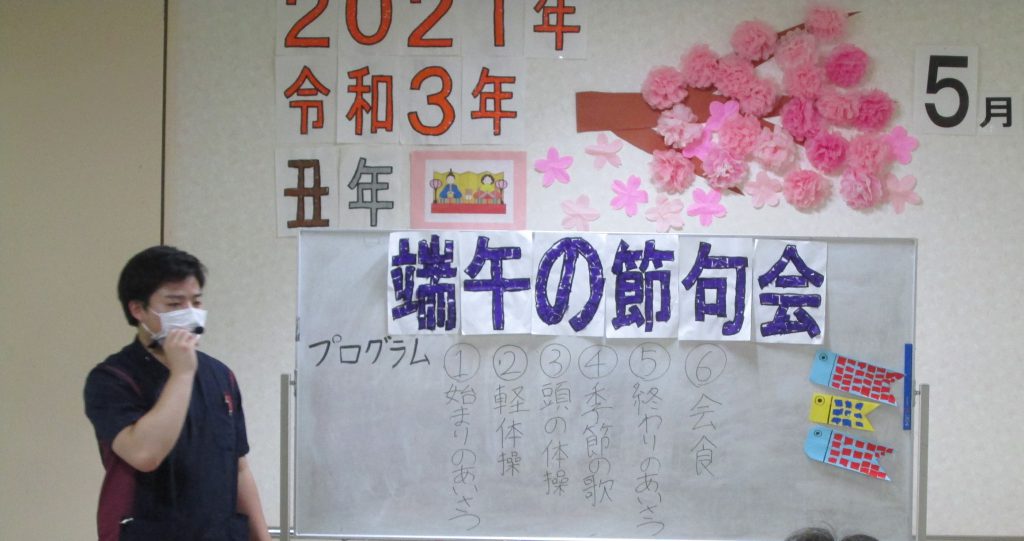 2021年
令和3年
丑年
5月
端午の節句会
プログラム
①始まりのあいさつ
②軽体操
③頭の体操
④季節の歌
⑤終わりのあいさつ
⑥会食